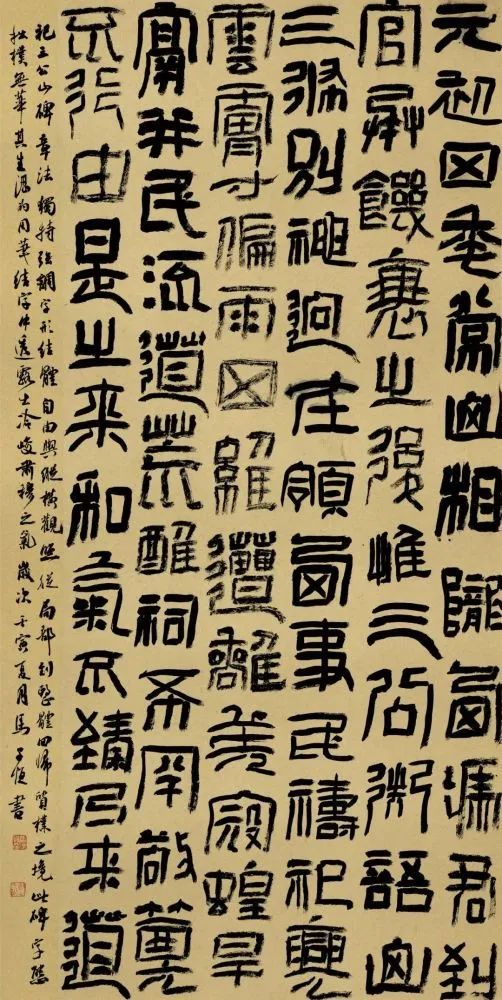 元初四年常山相隴西馮君到
官承饑衰之後惟三公御語山
三條別神迥在領西吏民禱祀興
雲膚寸偏雨四維遭離羌寇蝗旱
鬲并民流道荒醮祠希罕敬奠
不行由是之來和氣不臻乃來道
祀三公山碑章法獨特強調字形結體自由與縱橫觀照從局部到整體回歸質樸之境此碑字態
拙樸無華其生澀的用筆結字中透露出冷峻肅穆之氣歲次壬寅夏月馬恆書